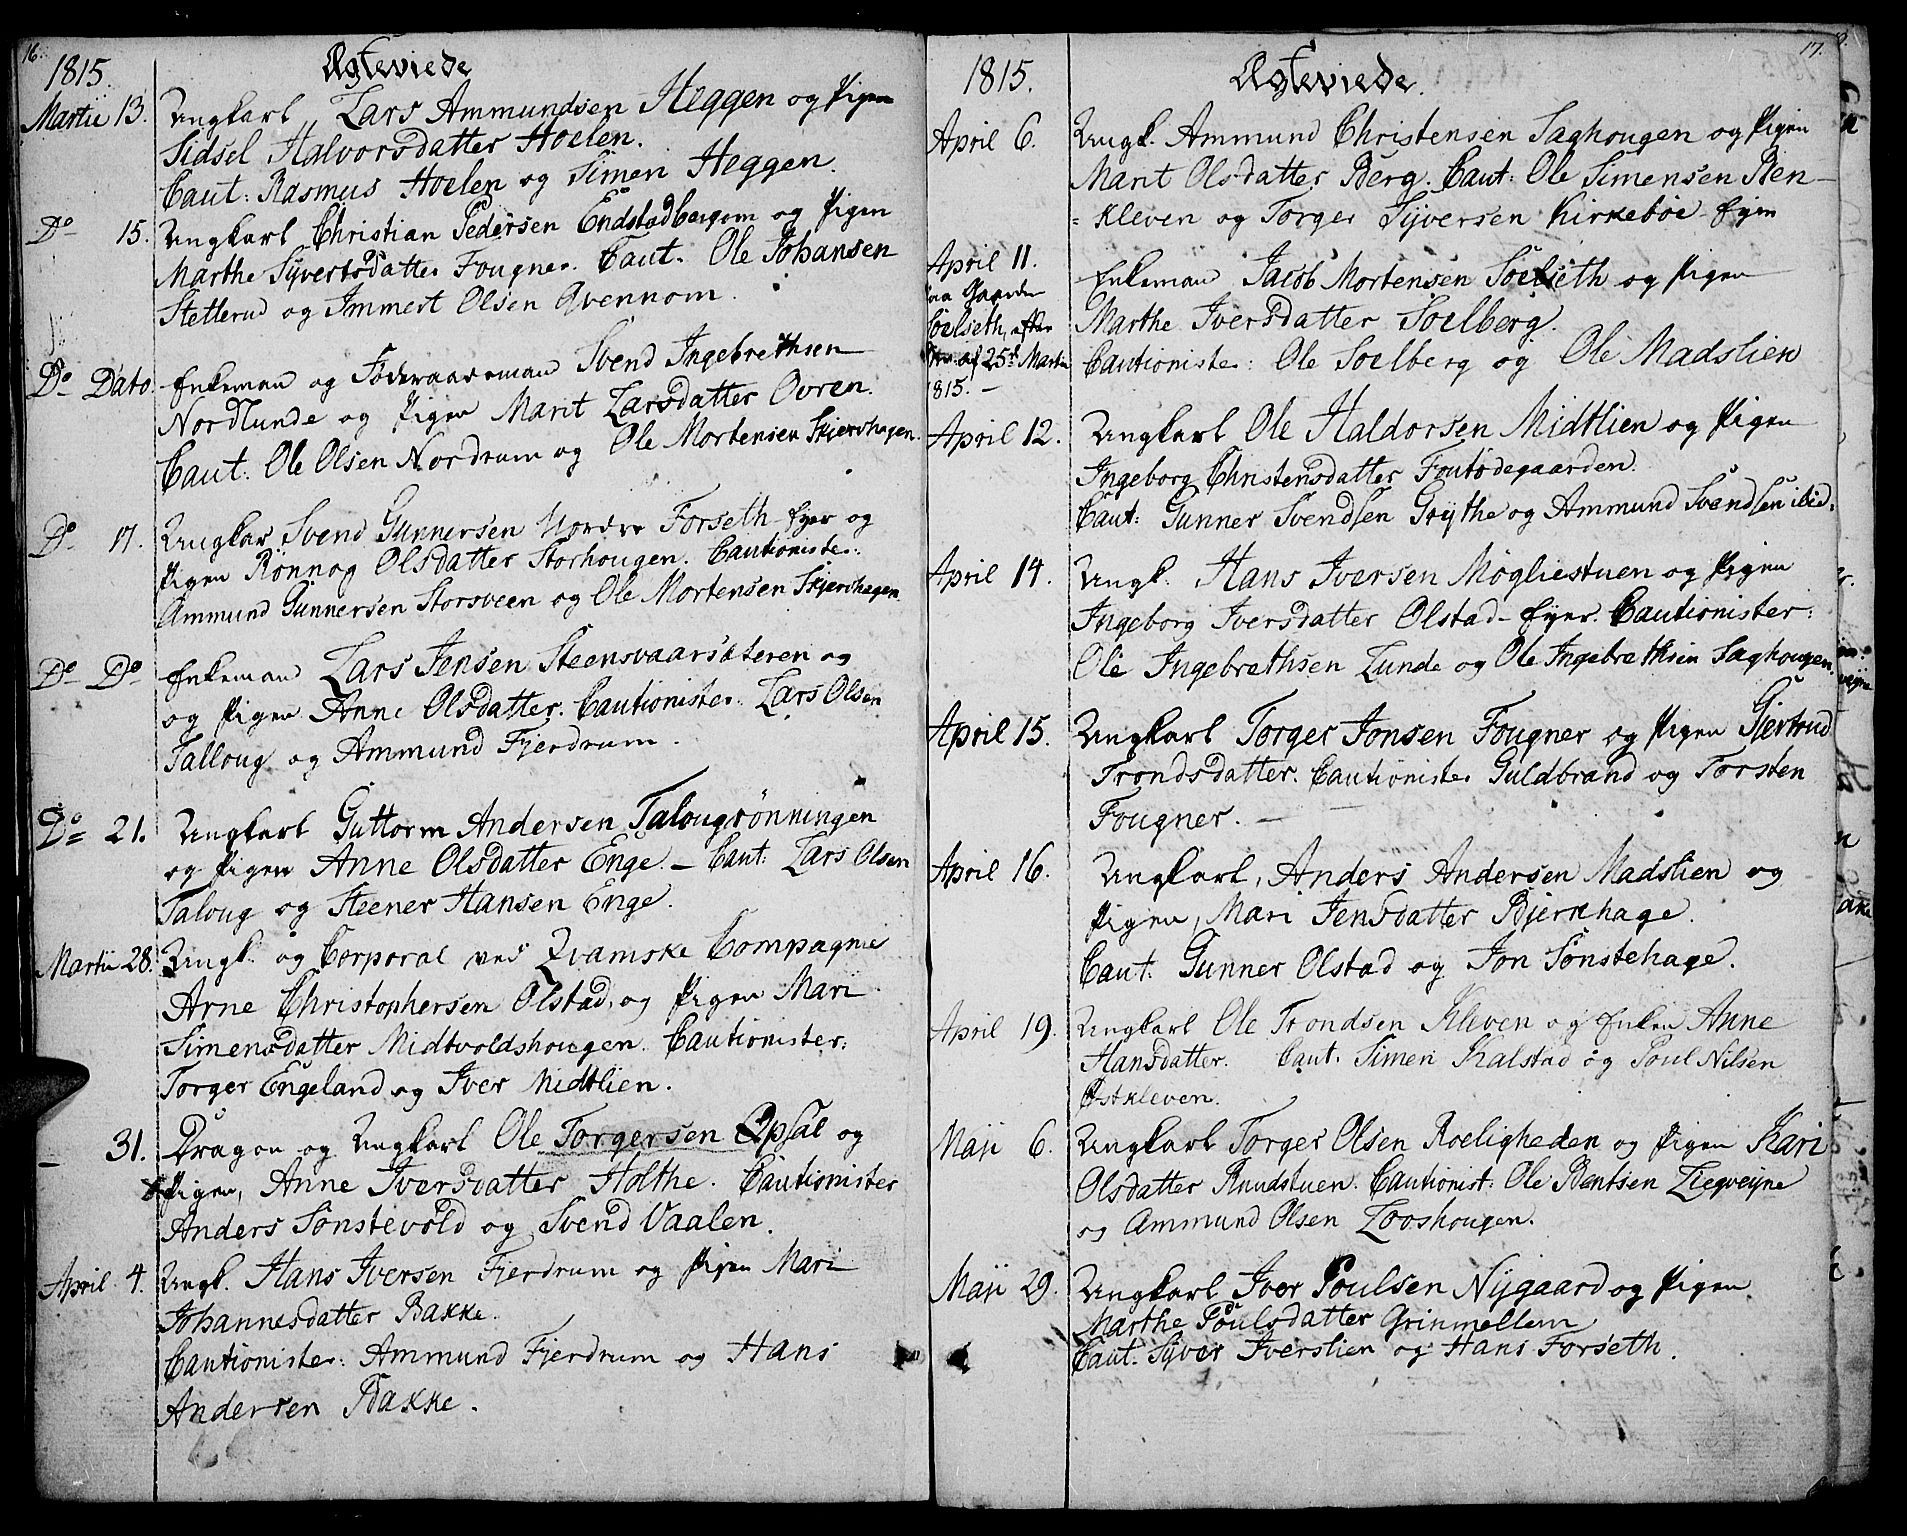 16.
1815. Ægteviede
Martii 13. Ungkarl Lars Ammundsen Heggen og Pigen
Sidsel Halvorsdatter Hoelen.
Caut: Rasmus Hoelen og Simen Heggen.
Do 15. Ungkarl Christian Pedersen Endstadbergom og Pigen
Marthe Syvertsdatter Fougner. Caut. Ole Johansen
Stetterud og Immert Olsen Qvennom.
Do Dato. Enkeman og Föderaadsman Svend Ingebrethsen
Nordlunde og Pigen Marit Larsdatter Ovren.
Caut: Ole Olsen Nordrum og Ole Mortensen Skjershagen.
Do 17. Ungkar Svend Gunnersen Nordre Forseth-Eyer og
Pigen Rönnog Olsdatter Storhougen. Cautionister:
Ammund Gunnersen Storsveen og Ole Mortensen Skjershagen
Do Do Enkeman Lars Jensen Steensvaarsæteren og
og Pigen Anne Olsdatter. Cautionister: Lars Olsen
Talloug og Ammund Fjerdrum.
Do 21. Ungkarl Guttorm Andersen Talougrönningen
og Pigen Anne Olsdatter Enge. – Caut: Lars Olsen
Taloug og Steener Hansen Enge.
Martii 28. Ungk. og Corporal ved Qvamske Compagnie
Arne Christophersen Olstad, og Pigen Mari
Simensdatter Midtvoldshougen. Cautionister:
Torger Engeland og Iver Midtlien.
– 31. Dragon og Ungkarl Ole Torgersen Opsal og
Pigen, Anne Iversdatter Holthe. Cautionister
Anders Sönstevold og Svend Vaalen.
April 4. Ungk. Hans Iversen Fjerdrum og Pigen Mari
Johannesdatter Bakke.
Cautionister: Ammund Fjerdrum og Hans
Andersen Bakke.
17.
1815. Ægteviede.
April 6. Ungk. Ammund Christensen Saghougen og Pigen
Marit Olsdatter Berg. Caut: Ole Simensen Ren-
=kleven og Torger Syversen Kirkeböe-Eyen
April 11.
paa Gaarden
Soelseth, efter
af 25de Martii
1815. –
Enkeman Jacob Mortensen Soelseth og Pigen
Marthe Iversdatter Soelberg.
Cautionister: Ole Soelberg og Ole Madslien
April 12. Ungkarl Ole Haldorsen Midtlien og Pigen
Ingeborg Christensdatter Foutödegaarden.
Caut: Gunner Svendsen Grythe og Ammund Svendsen ibid.
April 14. Ungk. Hans Iversen Mögliestuen og Pigen
Ingeborg Iversdatter Olstad-Eyer. Cautionister:
Ole Ingebrethsen Lunde og Ole Ingebrethsen Saghougen.
April 15. Ungkarl Torger Jonsen Fougner og Pigen Giertrud
Trondsdatter. Cautionister Guldbrand og Torsten
Fougner. –
April 16. Ungkarl, Anders Andersen Madslien og
Pigen, Mari Jensdatter Bjerkhage.
Caut: Gunner Olstad og Jon Sönstehage.
April 19. Ungkarl Ole Trondsen Kleven og Enken Anne
Hansdatter. Caut. Simen Kalstad og Poul Nilsen
Östkleven.
Maji 6. Ungkarl Torger Olsen Roeligheden og Pigen Kari
Olsdatter Knudstuen. Cautionist: Ole Bentsen Liegveyne
og Ammund Olsen Looshougen.
Maji 29. Ungkarl Iver Poulsen Nygaard og Pigen
Marthe Poulsdatter Grinmellem
Caut: Syver Iverslien og Hans Forseth.